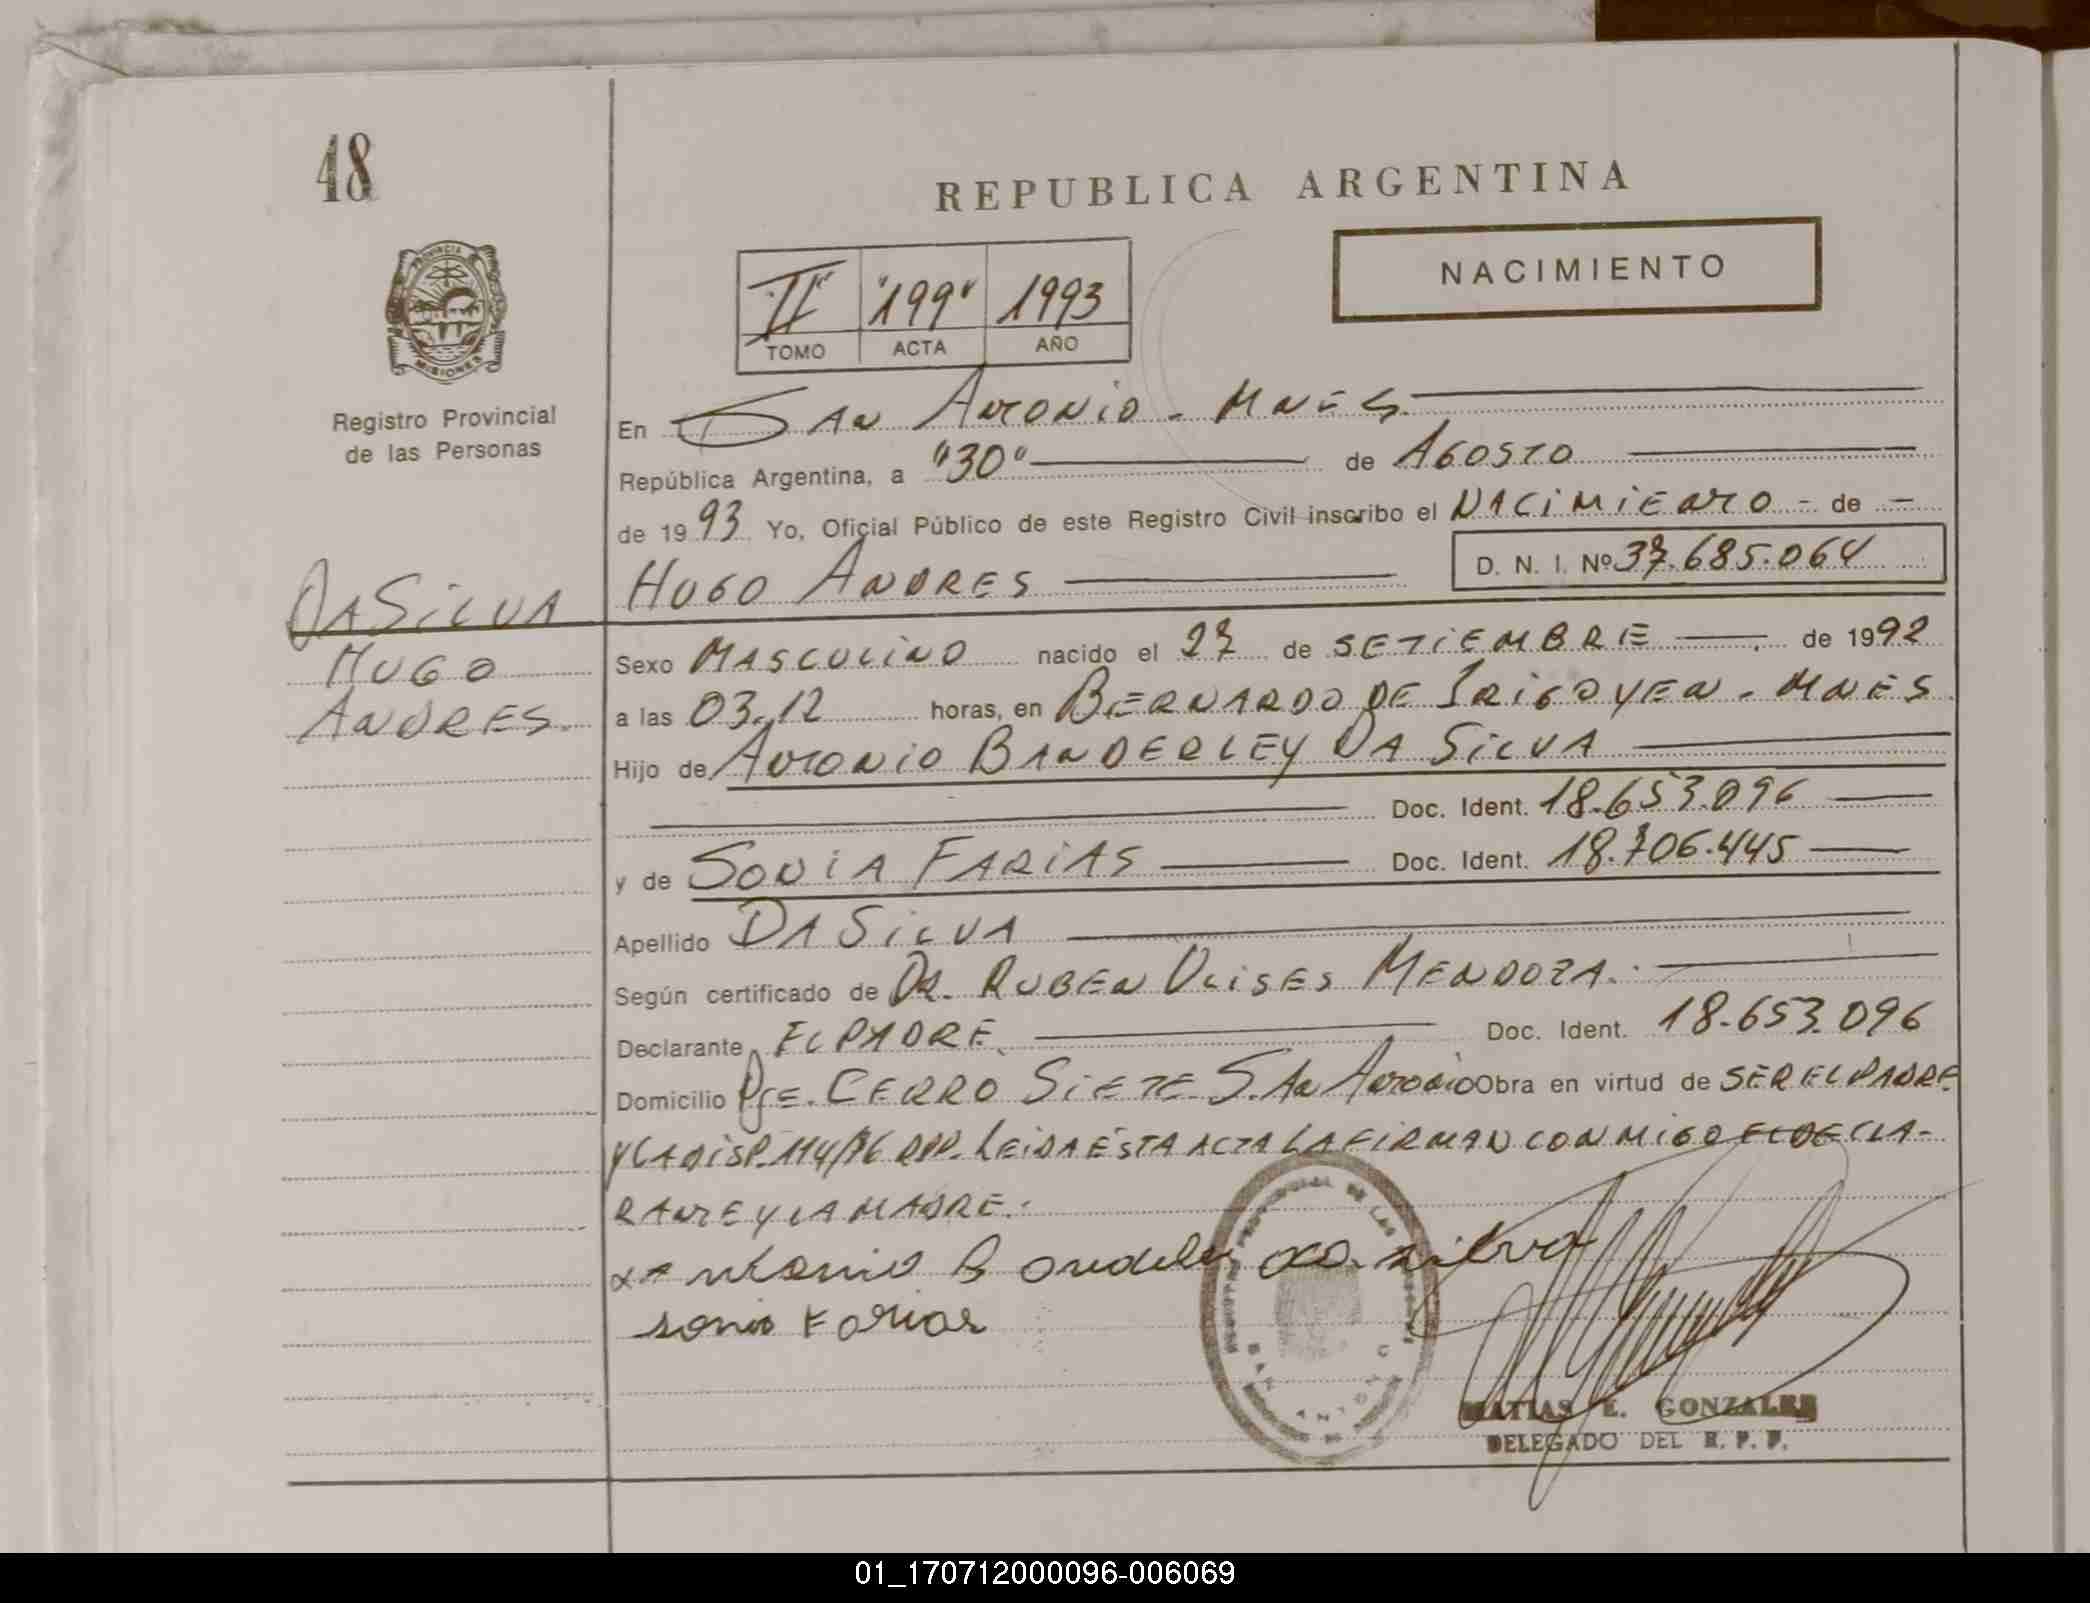 48
REPUBLICA ARGENTINA
NACIMIENTO
II "199" 1993
TOMO ACTA AÑO
PROVINCIA
MISIONES
Registro Provincial
de las Personas
En SAN ANTONIO - MNES.
República Argentina, a "30" de AGOSTO
de 1993 Yo, Oficial Público de este Registro Civil inscribo el NACIMIENTO - de -
D. N. I. Nº 37.685.064
DA SILVA HUGO ANDRES
HUGO
ANDRES.
Sexo MASCULINO nacido el 27 de SETIEMBRE de 1992
a las 03.12 horas, en BERNARDO DE IRIGOYEN - MNES
Hijo de ANTONIO BANDERLEY DA SILVA
Doc. Ident. 18.653.096
y de SONIA FARIAS Doc. Ident. 18.706.445
Apellido DA SILVA
Según certificado de DR. RUBEN ULISES MENDOZA.
Declarante EL PADRE. Doc. Ident. 18.653.096
Domicilio PJE. CERRO SIETE SAN ANTONIO Obra en virtud de SER EL PADRE
Y LA DISP. 114/76 RPP. LEIDA ESTA ACTA LA FIRMAN CONMIGO EL DECLA-
RANTE Y LA MADRE.
Antonio Bandeley da silva
sonia Farias
SAN ANTONIO
MATIAS E. GONZALES
DELEGADO DEL R. P. P.
01_170712000096-006069